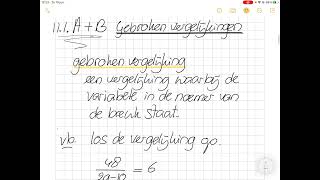 11.1. A+B Gebroken vergelijkingen
gebroken vergelijking
een vergelijking waarbij de
variabele in de noemer van
de breuk staat.
vb. los de vergelijking op.
48
= 6